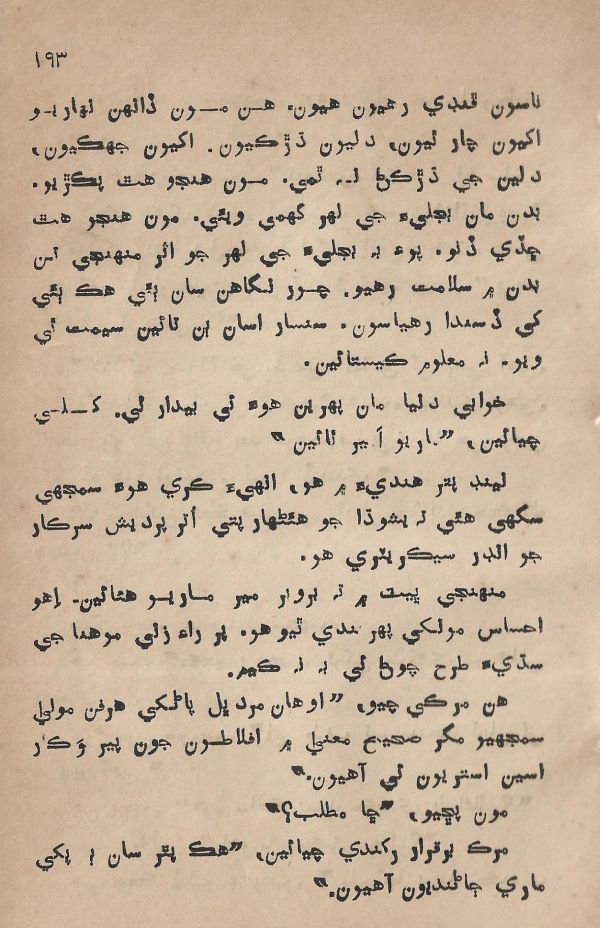 ١٩٣
ٿاسون ڦنڊي رهيون هيون. هن مون ڏانهن نهاريو
اکيون چار ٿيون، دليون ڌڙڪيون. اکيون جهڪيون،
دلين جي ڌڙڪڻ نہ ٿمي. مون هنجو هٿ پڪڙيو.
بدن مان بجليءَ جي لهر گهمي ويئي. مون هنجو هٿ
ڇڏي ڏنو. پوءِ بہ بجليءَ جي لهر جو اثر منهنجي تن
بدن ۾ سلامت رهيو. چور نگاهن سان ٻئي هڪ ٻئي
کي ڏسندا رهياسون. سنسار اسان ٻن تائين سيمت ٿي
ويو. نہ معلوم ڪيستائين.
خوابي دنيا مان پهرين هوءَ ئي بيدار ٿي.
چيائين، ”ماريو اَمير ٿائين“
ليند پٿر هنديءَ ۾ هو، انهيءَ ڪري هوءَ سمجهي
سگهي هئي تہ يشوڌا جو هٿڻهار پتي اُتر پرديش سرڪار
جو انڊر سيڪريٽري هو.
منهنجي پيٽ ۾ تہ برابر مير ماريو هئائين. اِهو
احساس مونکي پهر ندي ٿيو هو. پر راءِ زني موهندا جي
سڌيءَ طرح چوڻ ئي بہ نہ ڪيم.
هن مرڪي چيو، ”اوهان مرد ڀل پاڻکي هرفن مولیٰ
سمجهيو مگر صحيح معنیٰ ۾ افلاطون جون پير وَڪار
اسين استريون ئي آهيون.“
مون پڇيو، ”ڇا مطلب؟“
مرڪ برقرار رکندي چيائين، ”هڪ پٿر سان ٻہ پکي
ماري ڄاڻنديون آهيون.“